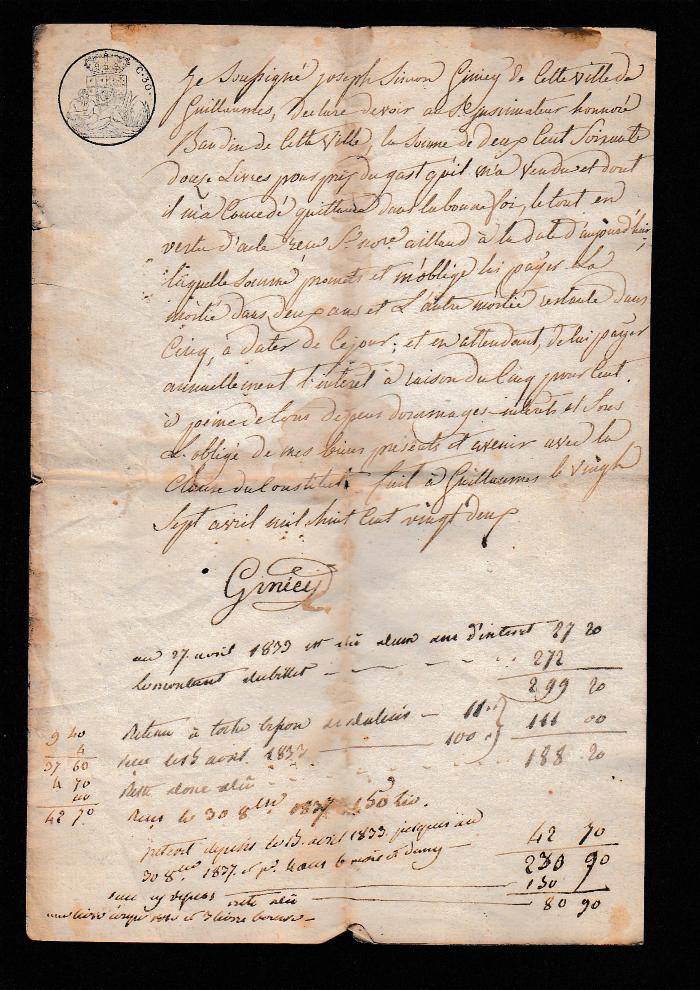 C. 30.
Je Soussigné joseph Simon Giniey de Cette ville de
Guillaumes, Declare devoir au Sr. Insinuateur honnoré
Baudin de Cette Ville, la Somme de deux Cent Soixante
douze Livres pour prix du gast qu'il m'a vendu et dont
il m'a Concedé quittance dans la bonne foi, le tout en
vertu d'acte reçu Sr. nore. aillaud à la date d'aujourd'hui;
laquelle Somme promets et m'oblige lui payer La
moitié dans deux ans et L'autre moitié restante dans
Cinq, à dater de Cejour; et en attendant, de lui payer
annuellement l'interet à raison du Cinq pour Cent.
à peine de tous depens dommages-interets et Sous
L'oblige de mes biens presents et avenir avec la
Clause du Constitut. fait à Guillaumes le vingt
Sept avril mil huit Cent vingt deux
Giniey
au 27 avril 1833 est dû deux ans d'interet 27 20
le montant du billet 272
299 20
Retenu à 11..
reçu le 15 avril 1833 100
111 00
188 20
Reste donc dû
Reçu le 30 8bre 1837 150 liv.
9 40
4
37 60
4 70
42 70
interet depuis le 15 avril 1833 jusques au
30 8bre 1837 et pr. 4 ans 6 mois et demy
42 70
230 90
150
reste dû 80 90